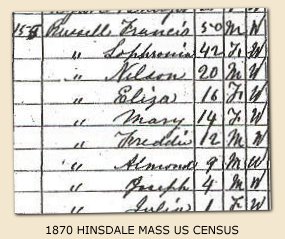 Russell Francis 50 M W
" Sophronia 42 F W
" Nilson 20 M W
" Eliza 16 F W
" Mary 14 F W
" Freddie 12 M W
" Almond 9 M W
" Joseph 4 M W
" Julia 1 F W
1870 HINSDALE MASS US CENSUS